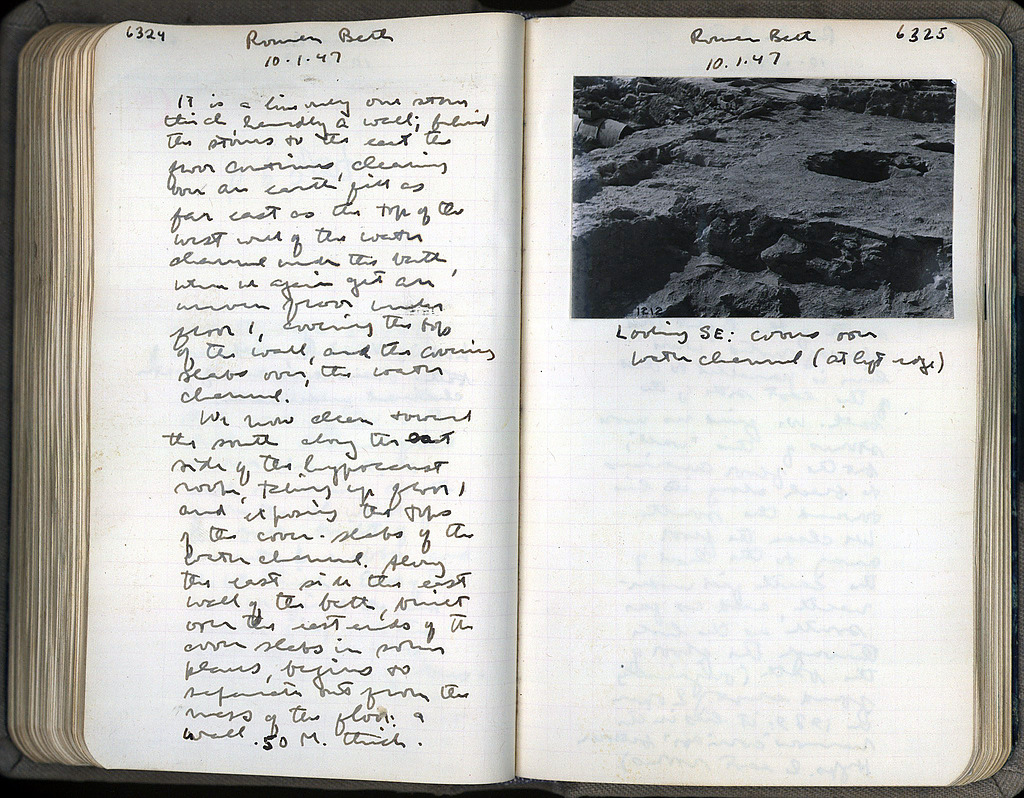 6324
Roman Bath
10.1.47
It is a line only one stone
thick, hardly a wall; behind
the stones to the east the
floor continues, clearing
over an earth fill as
far east as the top of the
west wall of the water
channel under the bath,
where we again get an
uneven floor under
floor 1, covering the top
of the wall, and the covering
slabs over the water
channel.
We now clean toward
the south along the east
side of the hypocaust
room, taking up floor 1
and exposing the tops
of the cover-slabs of the
water channel. Along
the east side the east
wall of the bath, built
over the east ends of the
cover slabs in some
places, begins to
separate out from the
mess of the floor: a
wall .50 M. thick.
6325
Roman Bath
10.1.47
1212
Looking SE: covers over
water channel (at left edge)